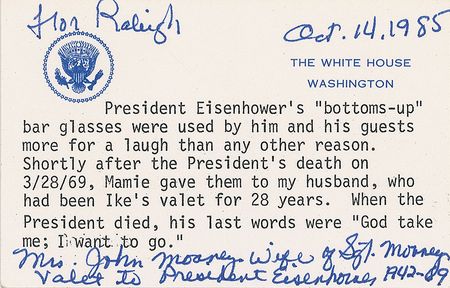 For Raleigh
Oct. 14, 1985
THE WHITE HOUSE
WASHINGTON
President Eisenhower's "bottoms-up"
bar glasses were used by him and his guests
more for a laugh than any other reason.
Shortly after the President's death on
3/28/69, Mamie gave them to my husband, who
had been Ike's valet for 28 years. When the
President died, his last words were "God take
me; I want to go."
Mrs. John Mooney Wife of Sgt. Mooney
Valet to President Eisenhower 1942-69